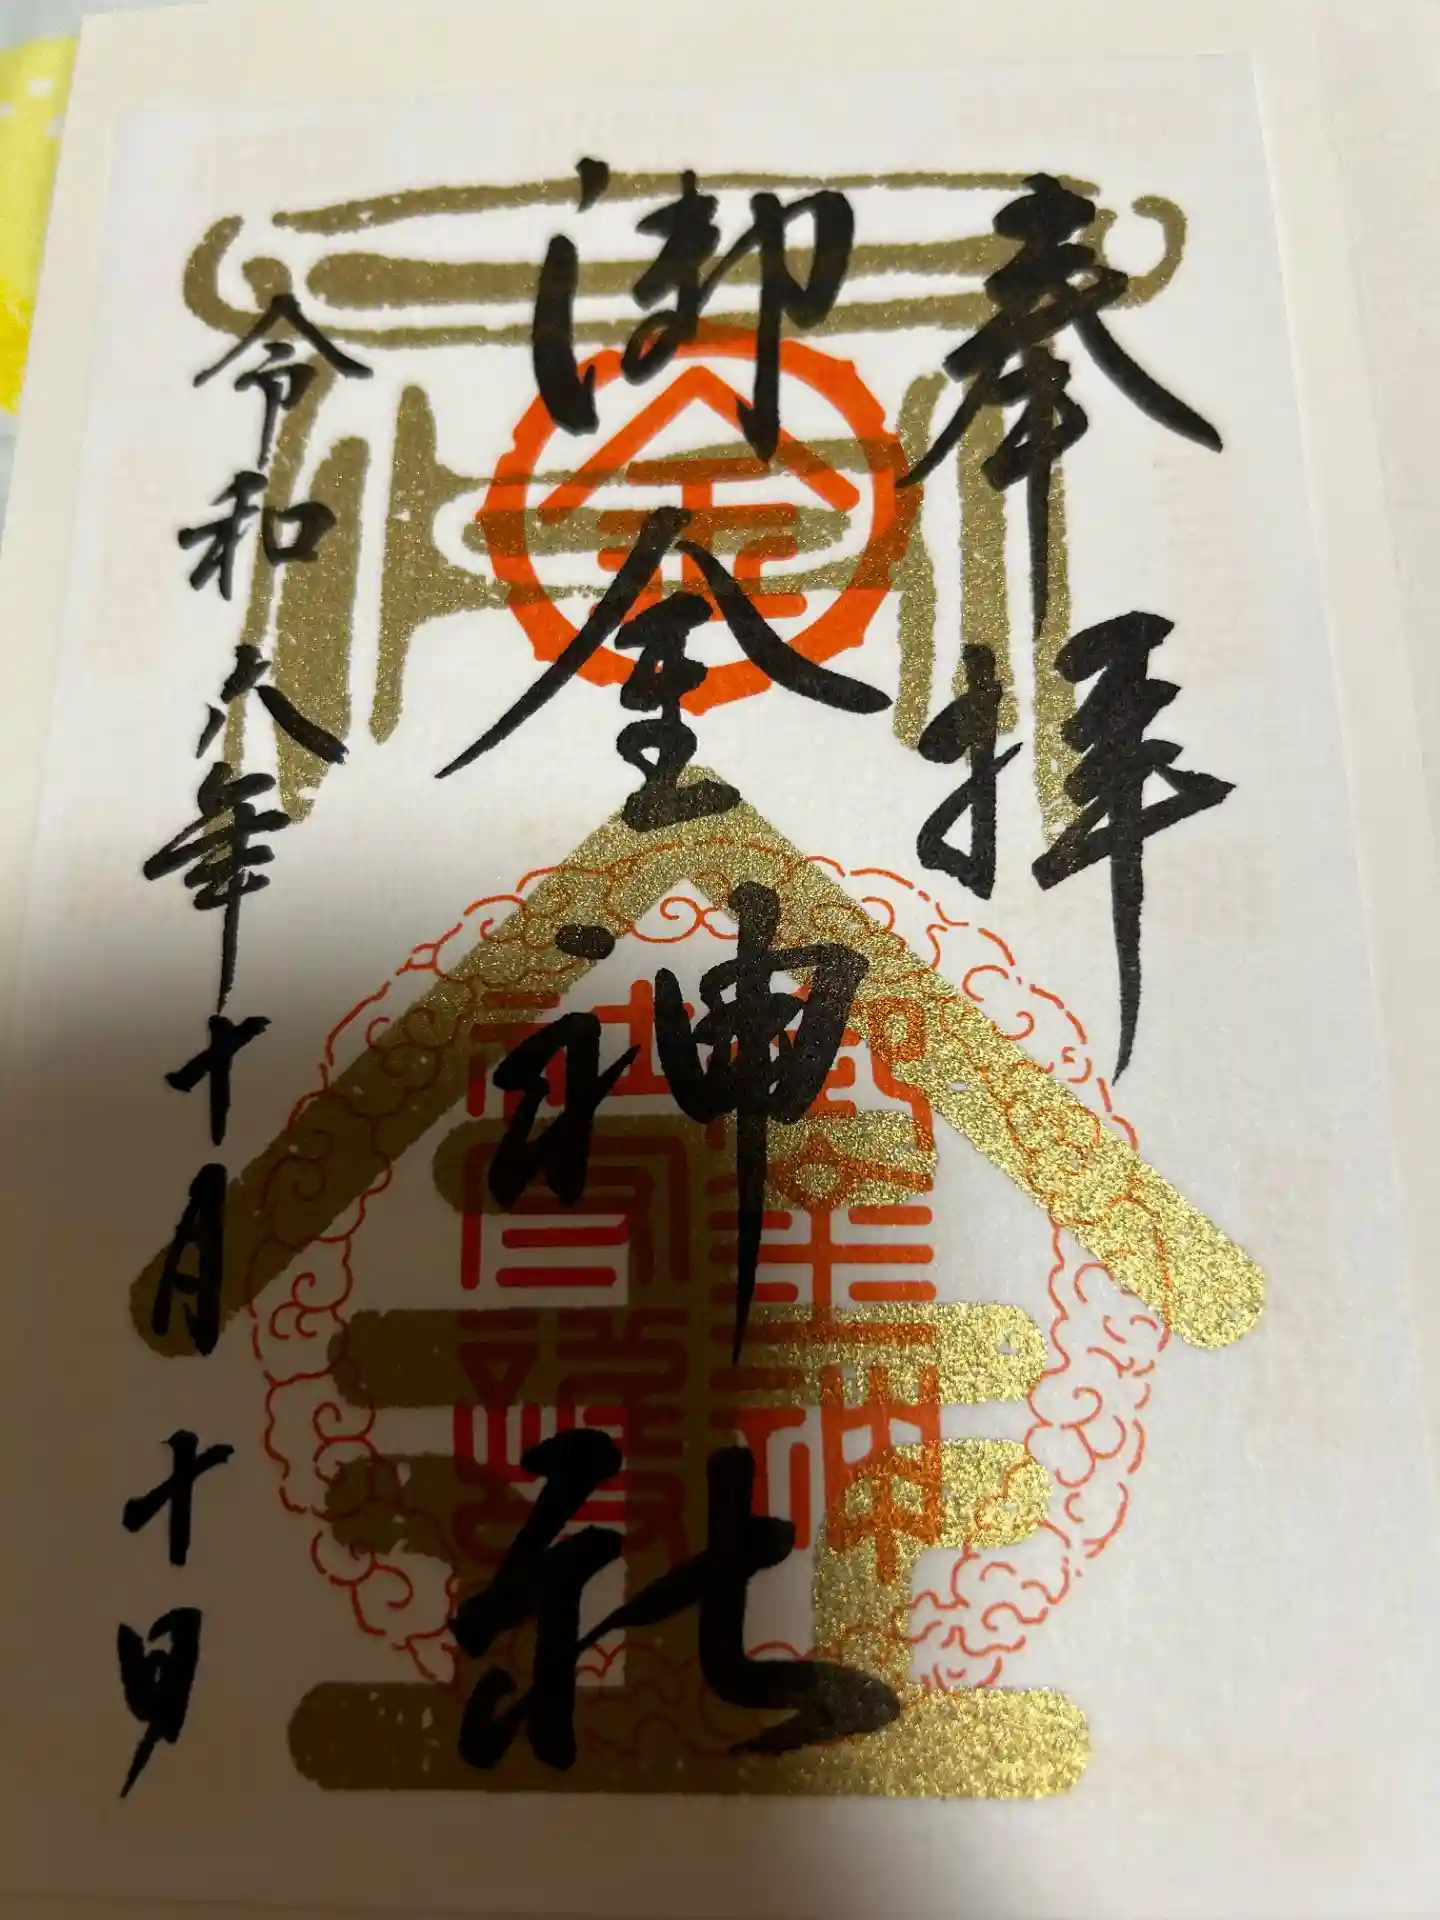 奉拝
御金神社
令和六年十月十日
金
御金神
社